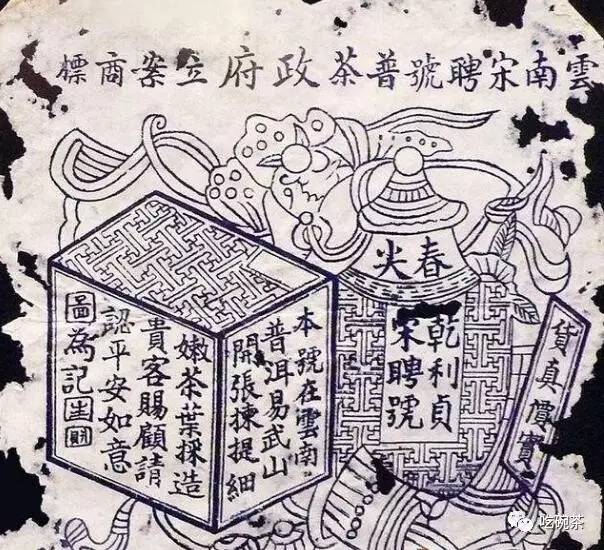 雲南宋聘號普茶政府立案商標
春尖
乾利貞
宋聘號
貨真價實
本號在雲南
普洱易武山
開張揀提細
嫩茶葉採造
貴客賜顧請
認平安如意
圖為記生財
吃碗茶